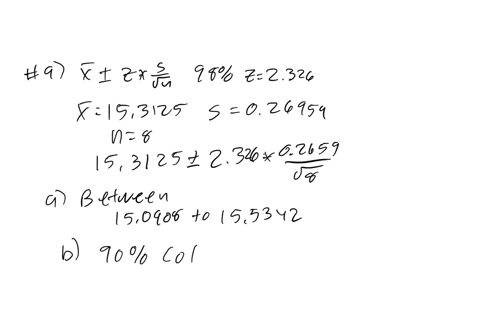 #a) x̄ ± z * s/√n 98% z=2.326
x̄=15.3125 s=0.26954
n=8
15.3125 ± 2.326 * 0.2659/√8
a) Between
15.0908 to 15.5342
b) 90% col